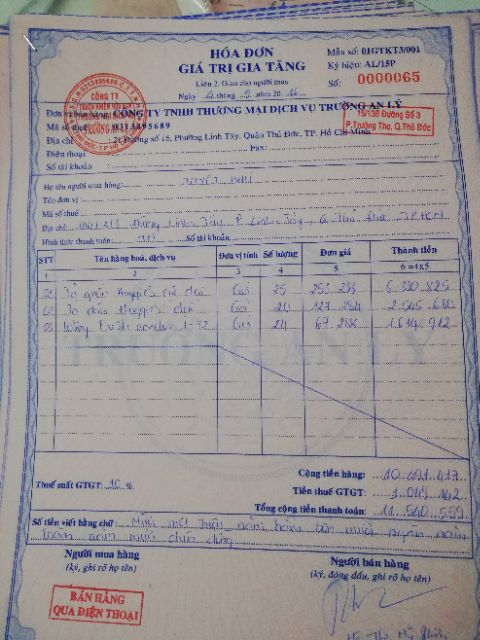 HÓA ĐƠN
GIÁ TRỊ GIA TĂNG
Liên 2: Giao cho người mua
Mẫu số: 01GTKT3/001
Ký hiệu: AL/15P
Số: 0000065
Đơn vị bán hàng: CÔNG TY TNHH THƯƠNG MẠI DỊCH VỤ TRƯỜNG AN LÝ
Mã số thuế: 0313495689
Địa chỉ: 21 Đường số 16, Phường Linh Tây, Quận Thủ Đức, TP. Hồ Chí Minh
75/13B Đường Số 3
P.Trường Thọ, Q.Thủ Đức
Điện thoại: Fax:
Số tài khoản:
Họ tên người mua hàng:
Tên đơn vị:
Mã số thuế:
Địa chỉ: Đường Linh Tây P. Linh Tây, Q Thủ Đức TP.HCM
Hình thức thanh toán: TM Số tài khoản:
STT Tên hàng hoá, dịch vụ Đơn vị tính Số lượng Đơn giá Thành tiền
1 2 3 4 5 6 =4x5
01 Tã quần Huggies Gói 25 253.233 6.330.825
02 Tã dán Huggies Gói 20 127.284 2.545.680
03 Gói 24 67.288 1.614.912
Cộng tiền hàng: 10.491.417
Thuế suất GTGT: 10 % Tiền thuế GTGT: 1.049.142
Tổng cộng tiền thanh toán: 11.540.559
Số tiền viết bằng chữ: Mười một triệu năm trăm bốn mươi ngàn năm
trăm năm mươi chín đồng
Người mua hàng Người bán hàng
(ký, ghi rõ họ tên) (ký, đóng dấu, ghi rõ họ tên)
BÁN HÀNG
QUA ĐIỆN THOẠI